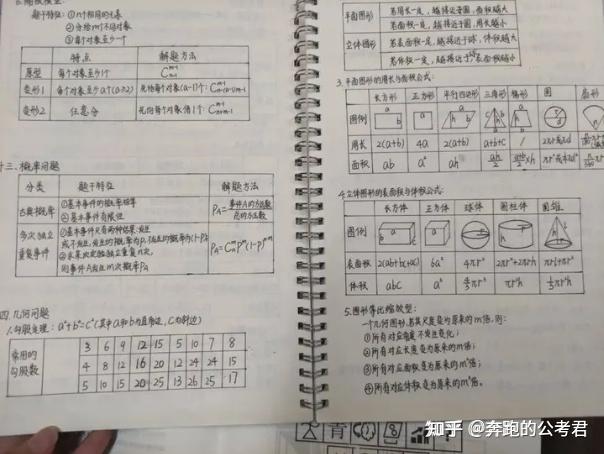 题干特征：①n个相同的元素
②分给m个不同对象
③每个对象至少一个
特点 解题方法
原型 每个对象至少1个 C_{n-1}^{m-1}
变形1 每个对象至少a个(a≥2) 先给每个对象(a-1)个：
变形2 任意分 先向每个对象借1个：
十三、概率问题
分类 题干特征 解题方法
古典概率 ①基本事件的概率相等
②基本事件有限性
P_A=事件A的方法数/总的方法数
多次独立重复事件 ①基本事件只有两种结果：发生
或不发生，发生的概率为P，不发生的概率为(1-P)
②某实验独立重复n次，
则事件A发生m次概率P_A
四、几何问题
1.勾股定理：a²+b²=c²(其中a和b为直角边，c为斜边)
常用的勾股数
3 6 9 12 15 5 10 7 8
4 8 12 16 20 12 24 24 15
5 10 15 20 25 13 26 25 17
平面图形 若周长一定，越接近于圆，面积越大
若面积一定，越接近于圆，周长越小
立体图形 若表面积一定，越接近于球，体积越大
若体积一定，越接近于球，表面积越小
3.平面图形的周长与面积公式：
长方形 正方形 平行四边形 三角形 梯形 圆 扇形
图例
周长 2(a+b) 4a 2(a+b) a+b+c / 2πr或πd
面积 ab a² ah ah/2
4.立体图形的表面积与体积公式：
长方体 正方体 球体 圆柱体 圆锥
图例
表面积 2(ab+bc+ac) 6a² 4πr² 2πr²+2πrh
体积 abc a³ 4/3πr³ πr²h 1/3πr²h
5.图形等比缩放型：
一个几何图形，若其尺度变为原来的m倍，则：
①所有对应角度不发生变化；
②所有对应长度变为原来的m倍；
③所有对应面积变为原来的m²倍；
④所有对应体积变为原来的m³倍。
青
知乎 @奔跑的公考君